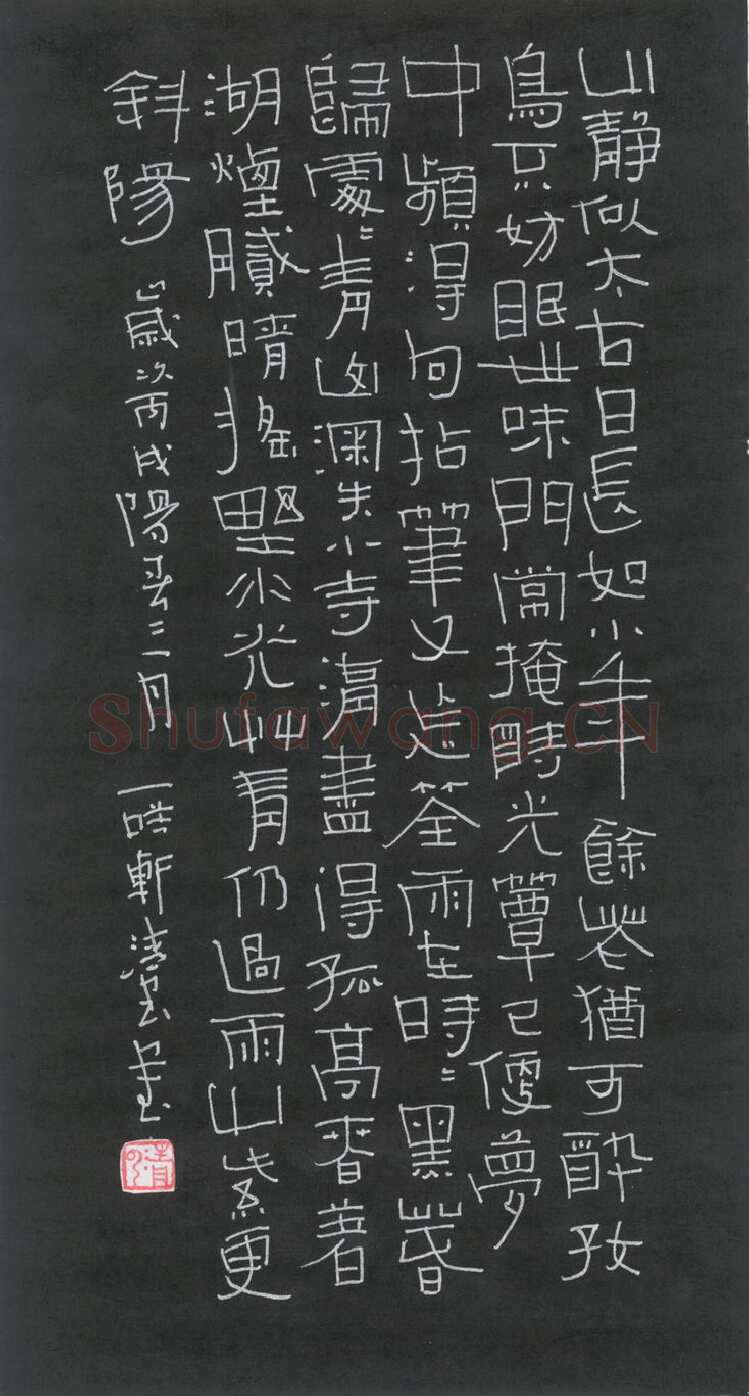 山靜似太古日長如小年餘花猶可醉好
鳥不妨眠世味門常掩時光簟已便夢
中頻得句拈筆又忘筌雨在時〻黑春
歸處〻青山深失小寺湖盡得孤高春著
湖煙膩晴搖野水光草青仍過雨山紫更
斜陽 歲次丙戌陽春三月 一 軒清 書
Shufawang.CN